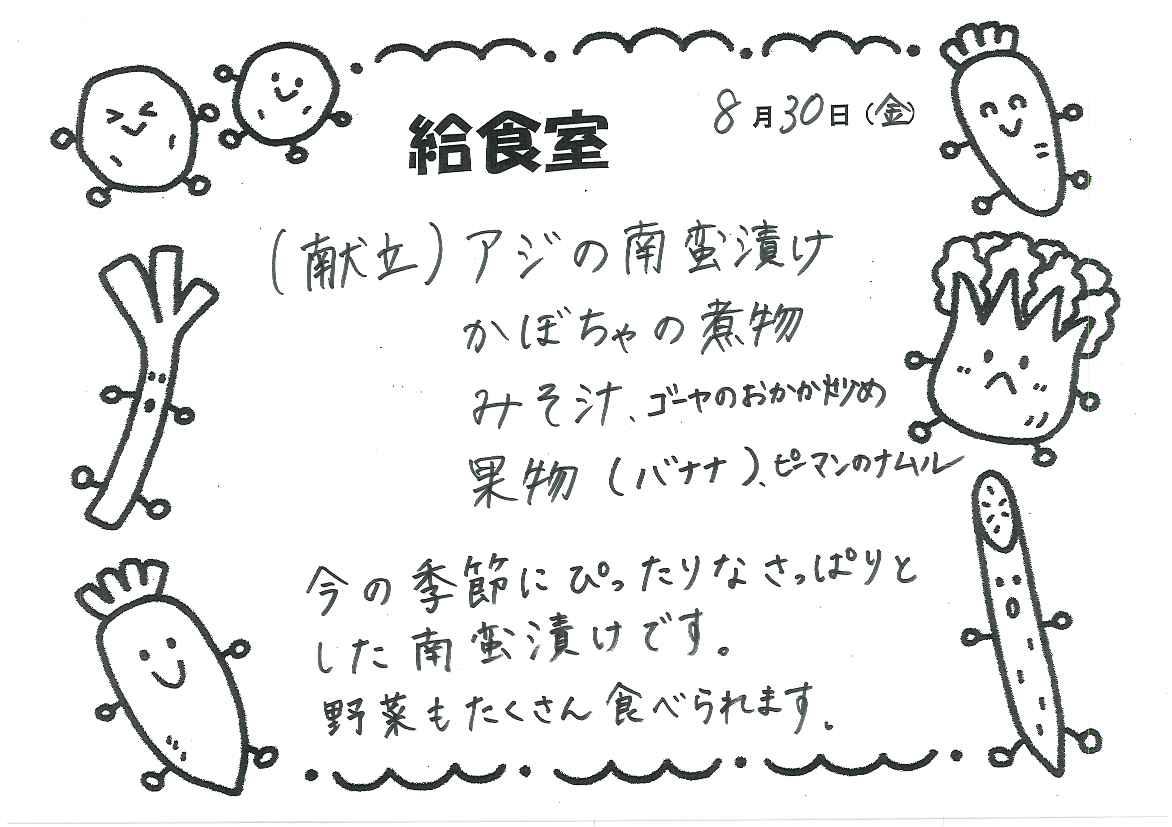 給食室
8月30日(金)
(献立)アジの南蛮漬け
かぼちゃの煮物
みそ汁、ゴーヤのおかか炒め
果物(バナナ)、ピーマンのナムル
今の季節にぴったりなさっぱりと
した南蛮漬けです。
野菜もたくさん食べられます。